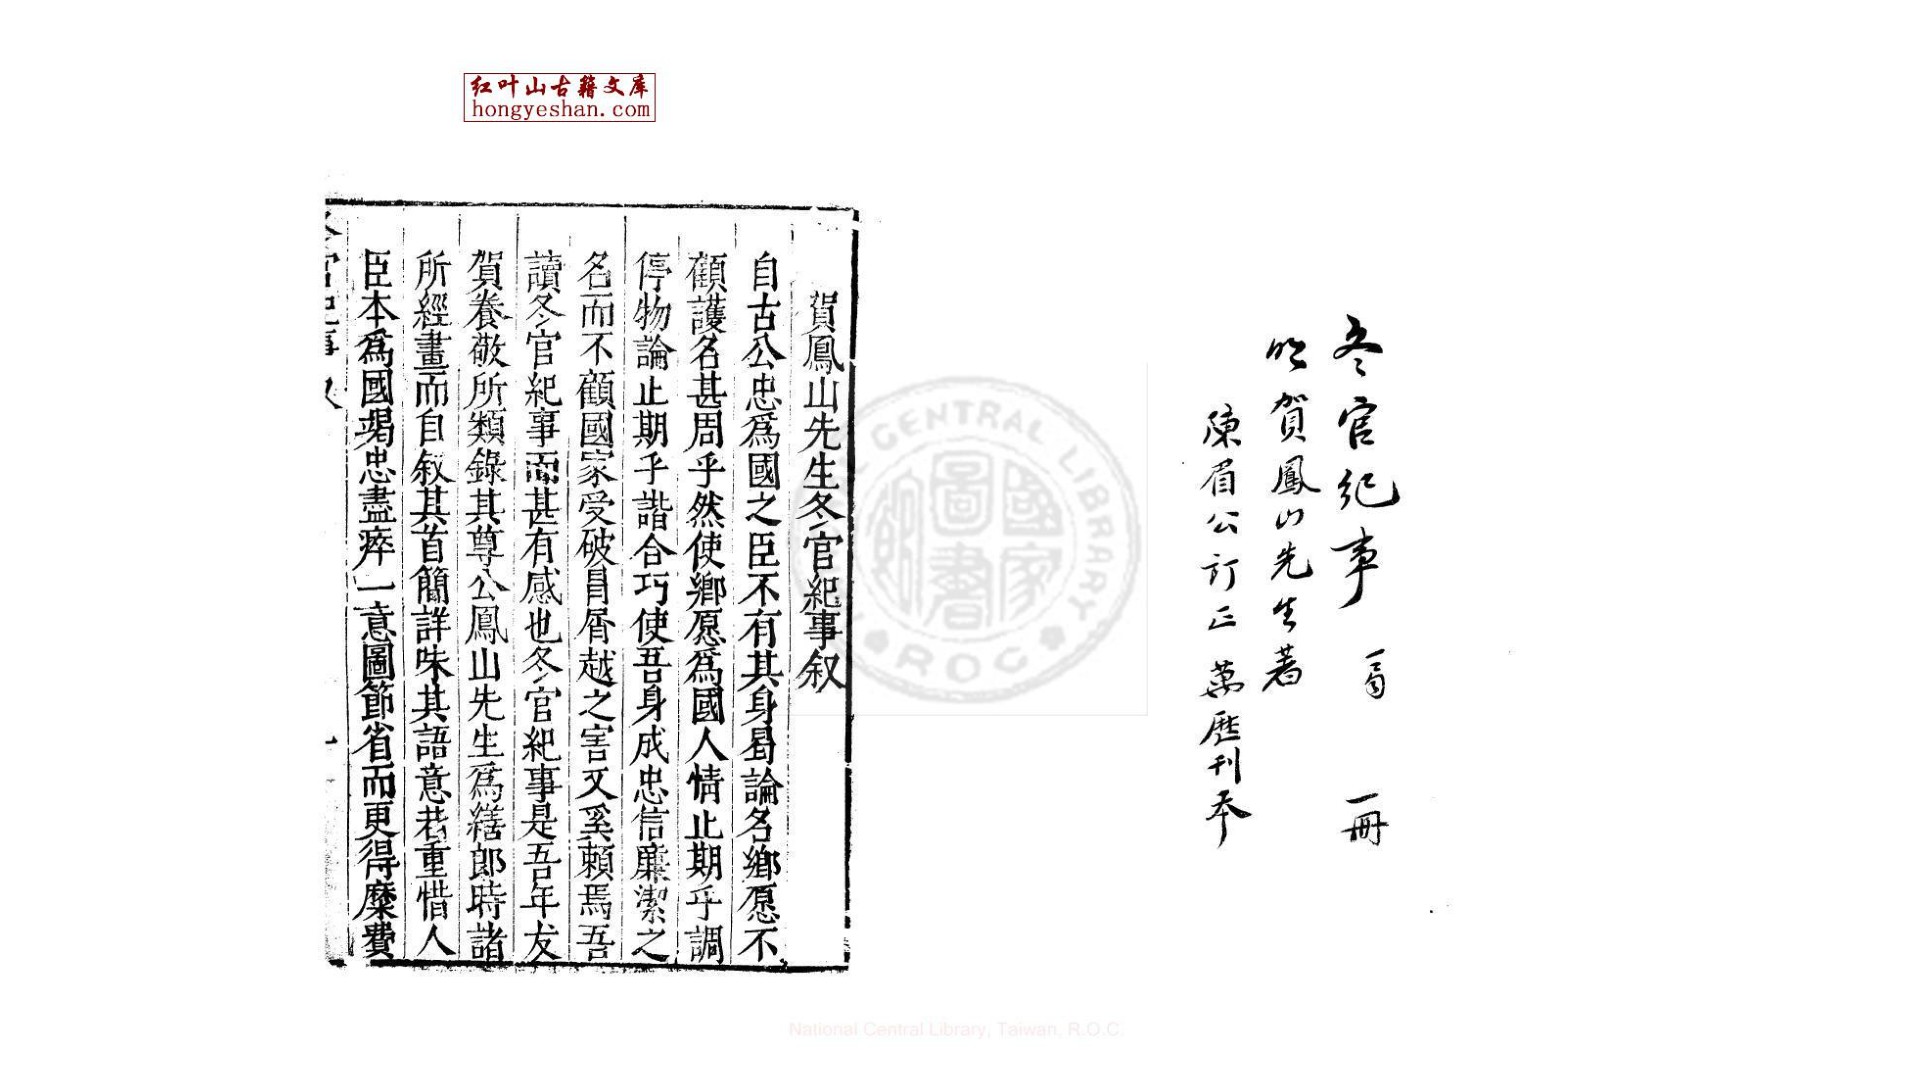 红叶山古籍文库
hongyeshan.com
冬官紀事 一冊
明賀鳳山先生著
陳眉公訂正 萬歷刊本
賀鳳山先生冬官紀事叙
自古公忠爲國之臣不有其身曷論名鄉愿不
顧護名甚周乎然使鄉愿爲國人情止期乎調
停物論止期乎諧合巧使吾身成忠信廉潔之
名而不顧國家受破冒屑越之害又奚頼焉吾
讀冬官紀事而甚有感也冬官紀事是吾年友
賀養敬所類錄其尊公鳳山先生爲繕郎時諸
所經畫而自叙其首簡詳味其語意若重惜人
臣本爲國竭忠盡瘁一意圖節省而更得糜費
冬官紀事 叙 一
NATIONAL CENTRAL LIBRARY ROC
國家圖書館
National Central Library, Taiwan, R.O.C